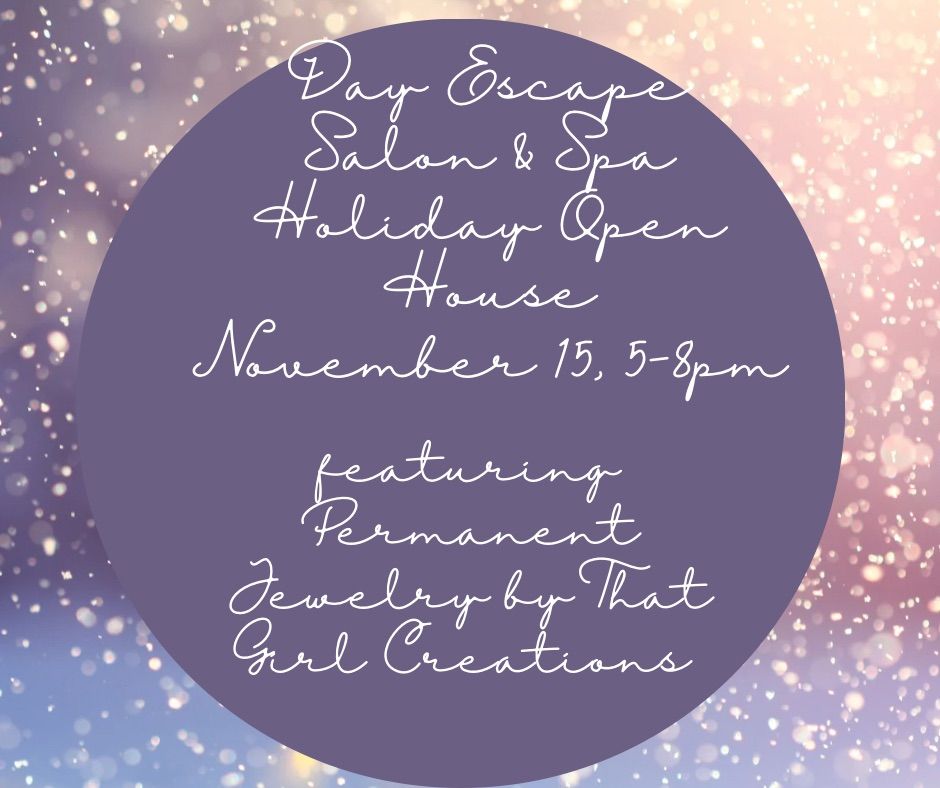 Day Escape
Salon & Spa
Holiday Open
House
November 15, 5-8pm
featuring
Permanent
Jewelry by That
Girl Creations